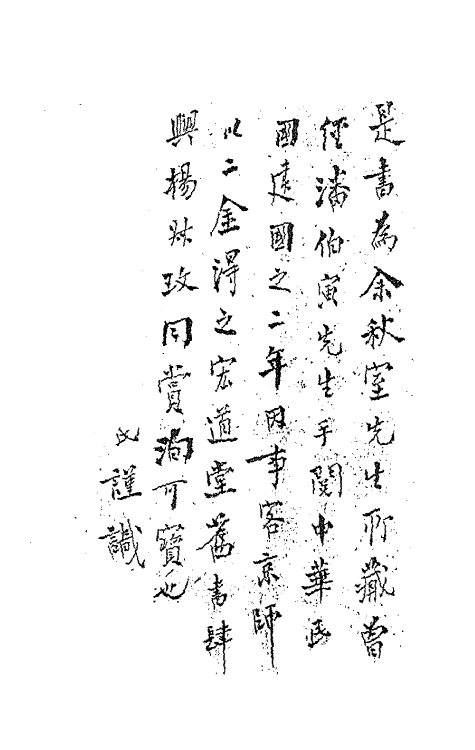 是書為余秋室先生所藏曾
經潘伯寅先生手閱中華民
國建國之二年因事客京師
以二金得之宏道堂舊書肆
與楊玫同賞洵可寶也
氏謹識